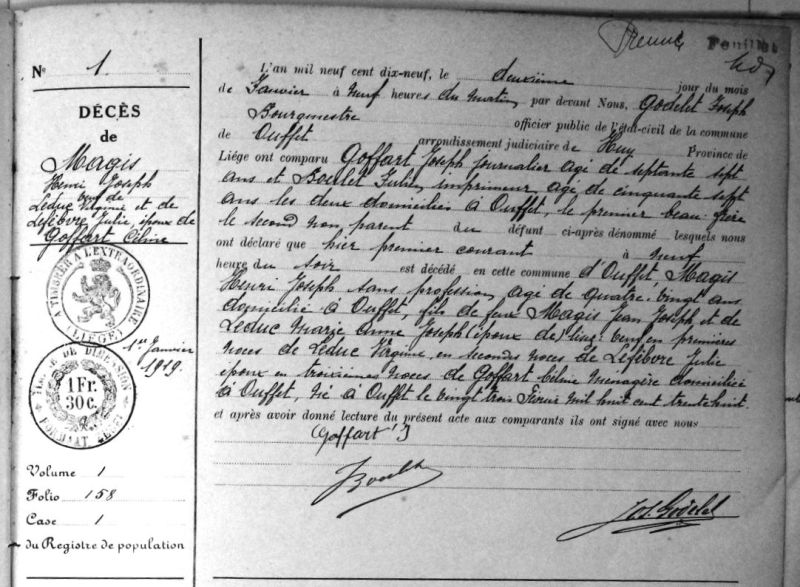 Nº 1
DÉCÈS
de
Magis
Henri Joseph
veuf de
Leduc Virginie et de
Lefèbvre Julie, époux de
Goffart Céline
A VISER A L'EXTRAORDINAIRE
(LIÉGE)
1er Janvier
1919.
1 Fr.
30 c.
Volume 1
Folio 158
Case 1
du Registre de population
Feuillet
L'an mil neuf cent dix-neuf, le deuxième jour du mois
de Janvier à neuf heures du matin par devant Nous, Godelet Joseph
Bourgmestre officier public de l'état-civil de la commune
de Ouffet arrondissement judiciaire de Huy Province de
Liége ont comparu Goffart Joseph journalier agé de septante sept
ans et Boulet Jules, imprimeur, agé de cinquante sept
ans les deux domiciliés à Ouffet, le premier beau-frère
le second non parent du défunt ci-après dénommé lesquels nous
ont déclaré que hier premier courant à neuf
heure du soir est décédé en cette commune d'Ouffet, Magis
Henri Joseph sans profession agé de quatre-vingt ans
domicilié à Ouffet, fils de feux Magis Jean Joseph et de
Leduc Marie Anne Joseph (époux de) veuf en premières
noces de Leduc Virginie, en secondes noces de Lefèbvre Julie
époux en troisièmes noces de Goffart Céline ménagère domiciliée
à Ouffet, né à Ouffet le vingt trois mil huit cent trente huit.
et après avoir donné lecture du présent acte aux comparants ils ont signé avec nous
Goffart J
J Boulet
Jos. Godelet